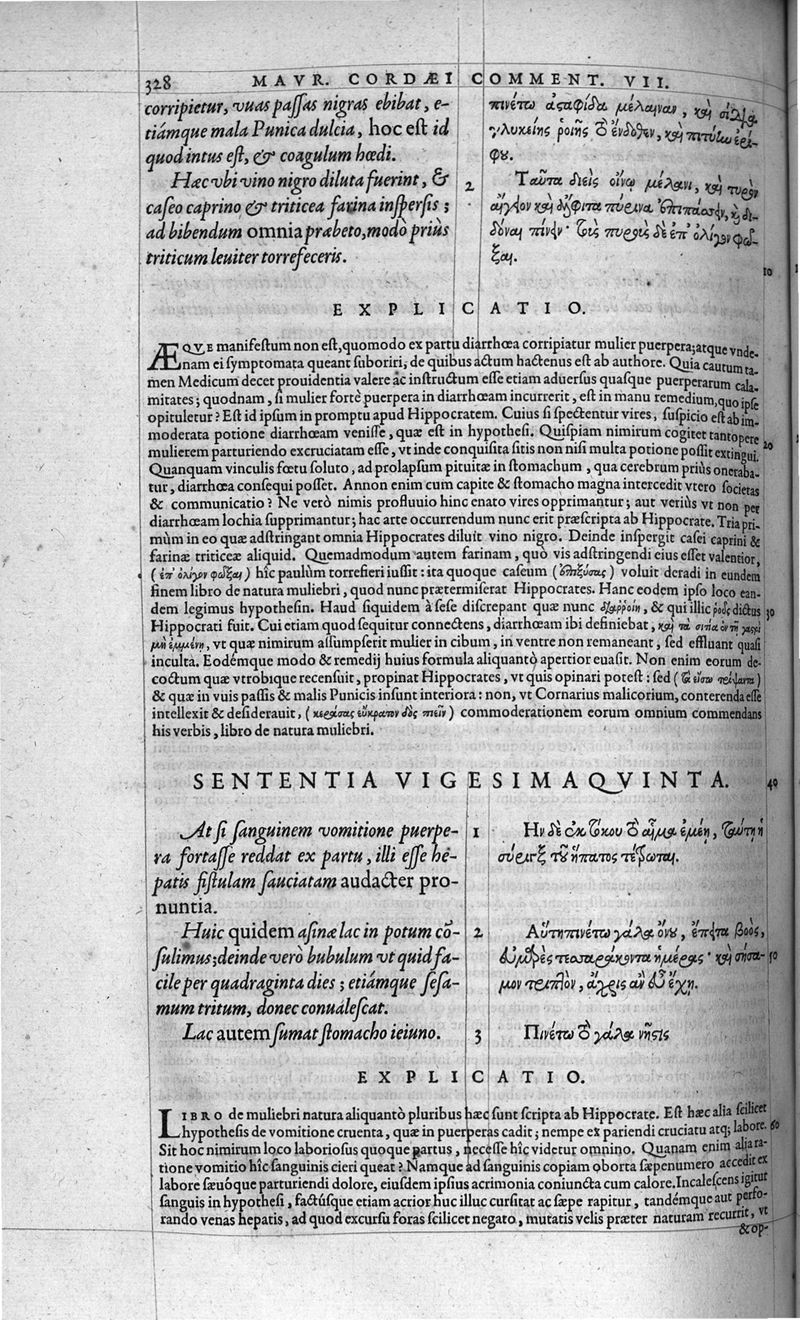 328 MAVR. CORDÆI COMMENT. VII.
corripietur, vuas passas nigras ebibat, e-
tiámque mala Punica dulcia, hoc est id
quod intus est, & coagulum hœdi.
Hæc vbi vino nigro diluta fuerint, &
caseo caprino & triticea farina inspersis;
ad bibendum omnia præbeto, modò priùs
triticum leuiter torrefeceris.
πινέτω ἀσαφίδα μέλαιναν, καὶ σίδια
γλυκείης ῥοιῆς τὸ ἔνδοθεν, καὶ πιτύην ἐρί-
φου.
2 Ταῦτα διεὶς οἴνῳ μέλανι, καὶ τυρὸν
αἴγειον καὶ ἄλφιτα πύρινα ἐπιπάσσειν, καὶ δι-
δόναι πίνειν· τοὺς πυροὺς δὲ ἐπ' ὀλίγον φώ-
ξαι.
10
EXPLICATIO.
ÆQVE manifestum non est, quomodo ex partu diarrhœa corripiatur mulier puerpera; atque vnde-
nam ei symptomata queant suboriri, de quibus actum hactenus est ab authore. Quia cautum ta-
men Medicum decet prouidentia valere ac instructum esse etiam aduersus quasque puerperarum cala-
mitates; quodnam, si mulier fortè puerpera in diarrhœam incurrerit, est in manu remedium, quo ipse
opituletur? Est id ipsum in promptu apud Hippocratem. Cuius si spectentur vires, suspicio est ab im-
moderata potione diarrhœam venisse, quæ est in hypothesi. Quispiam nimirum cogitet tantopere
mulierem parturiendo excruciatam esse, vt inde conquisita sitis non nisi multa potione possit extingui. 20
Quanquam vinculis fœtu soluto, ad prolapsum pituitæ in stomachum, qua cerebrum priùs oneraba-
tur, diarrhœa consequi posset. Annon enim cum capite & stomacho magna intercedit vtero societas
& communicatio? Ne verò nimis profluuio hinc enato vires opprimantur; aut veriùs vt non per
diarrhœam lochia supprimantur; hac arte occurrendum nunc erit præscripta ab Hippocrate. Tria pri-
mùm in eo quæ adstringant omnia Hippocrates diluit vino nigro. Deinde inspergit casei caprini &
farinæ triticeæ aliquid. Quemadmodum autem farinam, quò vis adstringendi eius esset valentior,
(ἐπ' ὀλίγον φώξαι) hîc paulùm torrefieri iussit: ita quoque caseum (ἐπιξύσας) voluit deradi in eundem
finem libro de natura muliebri, quod nunc prætermiserat Hippocrates. Hanc eodem ipso loco ean-
dem legimus hypothesin. Haud siquidem à sese discrepant quæ nunc διάρροια, & qui illic ῥόος dictus 30
Hippocrati fuit. Cui etiam quod sequitur connectens, diarrhœam ibi definiebat, καὶ τὰ σιτία ἐν τῇ γαστρὶ
μὴ ἐμμένῃ, vt quæ nimirum assumpserit mulier in cibum, in ventre non remaneant, sed effluant quasi
inculta. Eodémque modo & remedij huius formula aliquantò apertior euasit. Non enim eorum de-
coctum quæ vtrobique recensuit, propinat Hippocrates, vt quis opinari potest: sed (τὰ εἴσω τρίψαντα)
& quæ in vuis passis & malis Punicis insunt interiora: non, vt Cornarius malicorium, conterenda esse
intellexit & desiderauit, (κεράσας εὔκρατον δὸς πιεῖν) commoderationem eorum omnium commendans
his verbis, libro de natura muliebri.
SENTENTIA VIGESIMAQVINTA. 40
At si sanguinem vomitione puerpe-
ra fortasse reddat ex partu, illi esse he-
patis fistulam sauciatam audacter pro-
nuntia.
Huic quidem asinæ lac in potum cō-
sulimus; deinde verò bubulum vt quid fa-
cile per quadraginta dies; etiámque sesa-
mum tritum, donec conualescat.
Lac autem sumat stomacho ieiuno.
1 Ἢν δὲ ἐκ τόκου τὸ αἷμα ἐμέῃ, ταύτῃ ἡ
σύριγξ τοῦ ἥπατος τέτρωται.
2 Αὕτη πινέτω γάλα ὄνου, ἔπειτα βοὸς,
εὐμαρὲς τεσσαράκοντα ἡμέρας· καὶ σήσα- 50
μον τριπτὸν, ἄχρις ἂν εὖ ἔχῃ.
3 Πινέτω τὸ γάλα νῆστις
EXPLICATIO.
LIBRO de muliebri natura aliquantò pluribus hæc sunt scripta ab Hippocrate. Est hæc alia scilicet
hypothesis de vomitione cruenta, quæ in puerperas cadit; nempe ex pariendi cruciatu atq; labore. 60
Sit hoc nimirum loco laboriosus quoque partus, necesse hîc videtur omnino. Quanam enim alia ra-
tione vomitio hîc sanguinis cieri queat? Namque ad sanguinis copiam oborta sæpenumero accedit ex
labore sæuóque parturiendi dolore, eiusdem ipsius acrimonia coniuncta cum calore. Incalescens igitur
sanguis in hypothesi, factúsque etiam acrior huc illuc cursitat ac sæpe rapitur, tandémque aut perfo-
rando venas hepatis, ad quod excursu foras scilicet negato, mutatis velis præter naturam recurrit, vt
& op-